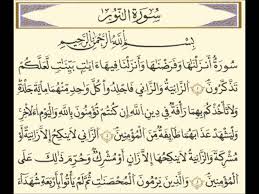 سُورَةُ النُّورِ
بِسْمِ اللَّهِ الرَّحْمَٰنِ الرَّحِيمِ
سُورَةٌ أَنزَلْنَٰهَا وَفَرَضْنَٰهَا وَأَنزَلْنَا فِيهَآ ءَايَٰتٍۭ بَيِّنَٰتٍ لَّعَلَّكُمْ
تَذَكَّرُونَ ١ ٱلزَّانِيَةُ وَٱلزَّانِى فَٱجْلِدُوا۟ كُلَّ وَٰحِدٍ مِّنْهُمَا مِا۟ئَةَ جَلْدَةٍ
وَلَا تَأْخُذْكُم بِهِمَا رَأْفَةٌ فِى دِينِ ٱللَّهِ إِن كُنتُمْ تُؤْمِنُونَ بِٱللَّهِ وَٱلْيَوْمِ ٱلْءَاخِرِ
وَلْيَشْهَدْ عَذَابَهُمَا طَآئِفَةٌ مِّنَ ٱلْمُؤْمِنِينَ ٢ ٱلزَّانِى لَا يَنكِحُ إِلَّا زَانِيَةً
أَوْ مُشْرِكَةً وَٱلزَّانِيَةُ لَا يَنكِحُهَآ إِلَّا زَانٍ أَوْ مُشْرِكٌ وَحُرِّمَ ذَٰلِكَ عَلَى
ٱلْمُؤْمِنِينَ ٣ وَٱلَّذِينَ يَرْمُونَ ٱلْمُحْصَنَٰتِ ثُمَّ لَمْ يَأْتُوا۟ بِأَرْبَعَةِ شُهَدَآءَ